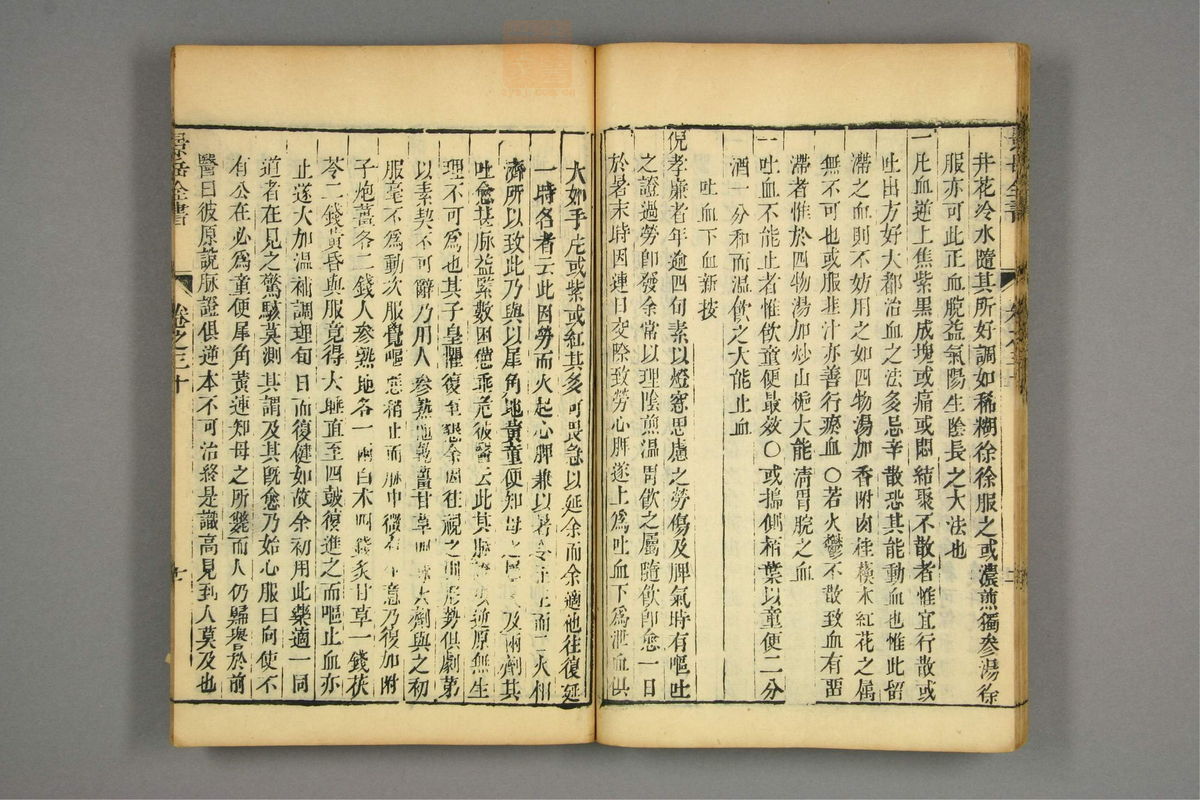 井花冷水隨其所好調如稀糊徐徐服之或濃煎獨參湯徐
服亦可此正血脫益氣陽生陰長之大法也
一凡血逆上焦紫黑成塊或痛或悶結聚不散者惟宜行散或
吐出方好大都治血之法多忌辛散恐其能動血也惟此留
滯之血則不妨用之如四物湯加香附肉桂蘇木紅花之屬
無不可也或服韭汁亦善行瘀血○若火鬱不散致血有畱
滯者惟於四物湯加炒山梔大能清胃脘之血
一吐血不能止者惟飲童便最效○或搗側栢葉以童便二分
酒一分和而溫飲之大能止血
吐血下血新按
倪孝廉者年逾四旬素以燈窓思慮之勞傷及脾氣時有嘔吐
之證過勞即發余常以理陰煎溫胃飲之屬隨飲即愈一日
於暑末時因連日交際致勞心脾遂上爲吐血下爲泄血俱
大如手片或紫或紅其多可畏急以延余而余適他往復延
一時名者云此因勞而火起心脾兼以暑令正王而二火相
濟所以致此乃與以犀角地黃童便知母之屬 及兩劑其
吐愈甚脉益緊數困憊垂危彼醫云此其脉 逆原無生
理不可爲也其子皇懼復至懇余因往視之則形勢俱劇第
以素契不可辭乃用人參熟地乾薑甘草四味大劑與之初
服毫不爲動次服覺嘔惡稍止而脉中微有生意乃復加附
子炮薑各二錢人參熟地各一兩白术四錢炙甘草一錢茯
苓二錢黃昏與服竟得大睡直至四鼓復進之而嘔止血亦
止遂大加溫補調理旬日而復健如故余初用此藥適一同
道者在見之驚駭莫測其謂及其旣愈乃始心服曰向使不
有公在必爲童便犀角黃連知母之所斃而人仍歸譽於前
醫曰彼原說脉證俱逆本不可治終是識高見到人莫及也
景岳全書
卷之三十